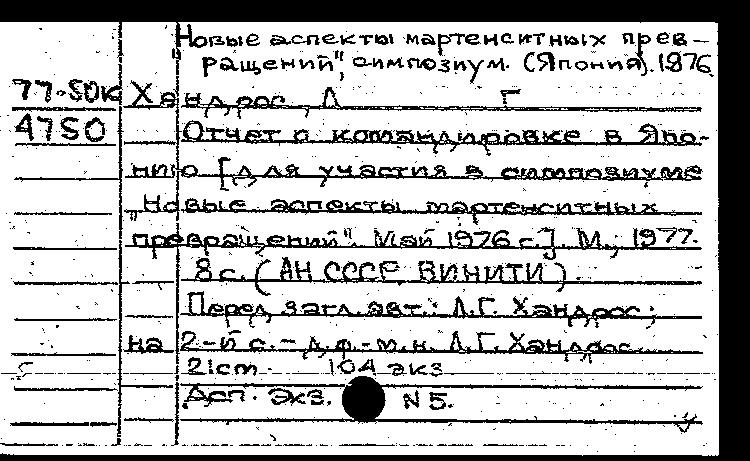 "Новые аспекты мартенситных прев-
ращений", симпозиум. (Япония). 1976
77-50к Хандрос, Л Г
4750 Отчет о командировке в Япо-
нию [для участия в симпозиуме
"Новые аспекты мартенситных
превращений". Май 1976 г.]. М., 1977.
8 с. (АН СССР. ВИНИТИ).
Перед загл. авт.: Л.Г. Хандрос;
на 2-й с. - д.ф.-м.н. Л.Г. Хандрос.
21см. 104 экз.
Дсп. Экз. N 5.